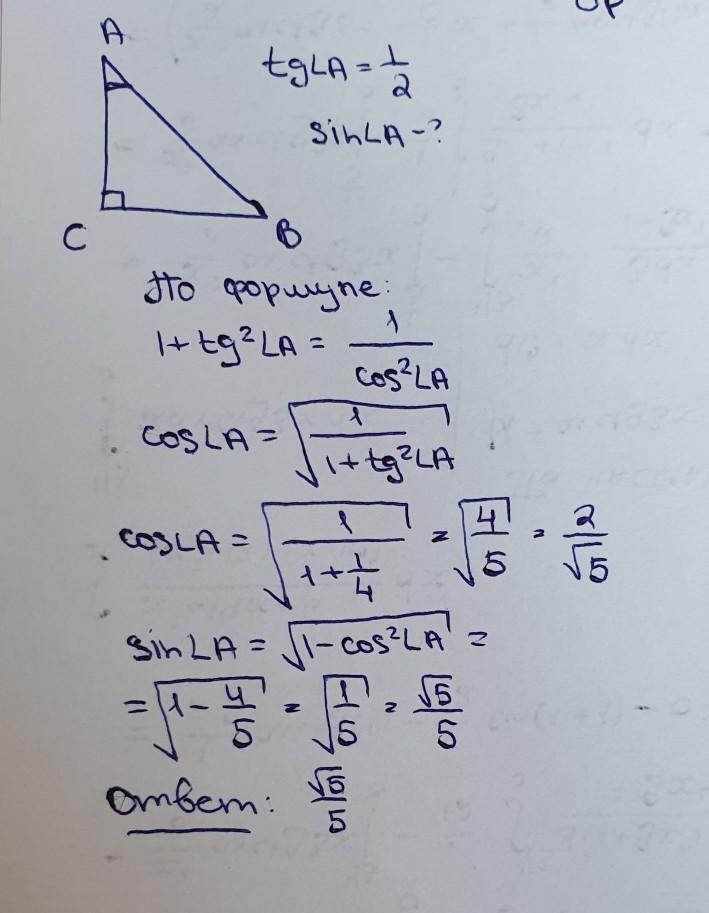 Ор
A
tg∠A = 1/2
sin∠A - ?
C
B
По формуле:
1 + tg²∠A = 1/cos²∠A
cos∠A = √(1/(1 + tg²∠A))
cos∠A = √(1/(1 + 1/4)) = √(4/5) = 2/√5
sin∠A = √(1 - cos²∠A) =
= √(1 - 4/5) = √(1/5) = √5/5
Ответ: √5/5